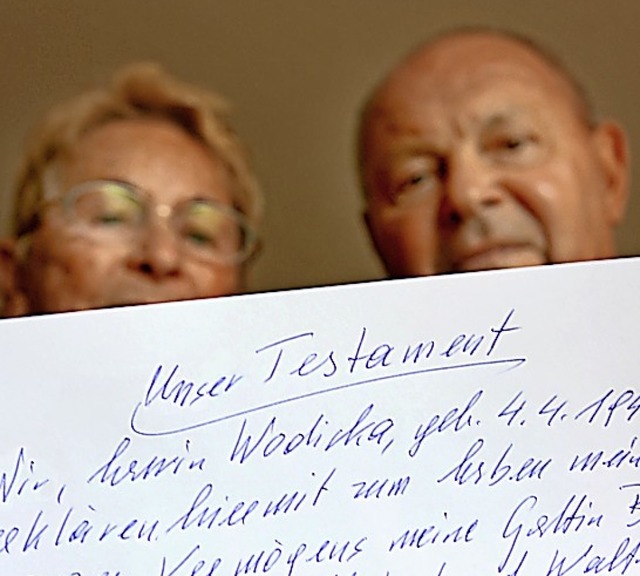 Unser Testament
Wir, Erwin Wodicka, geb. 4.4.194
erklären hiermit zum Erben mein
Vermögens meine Gattin